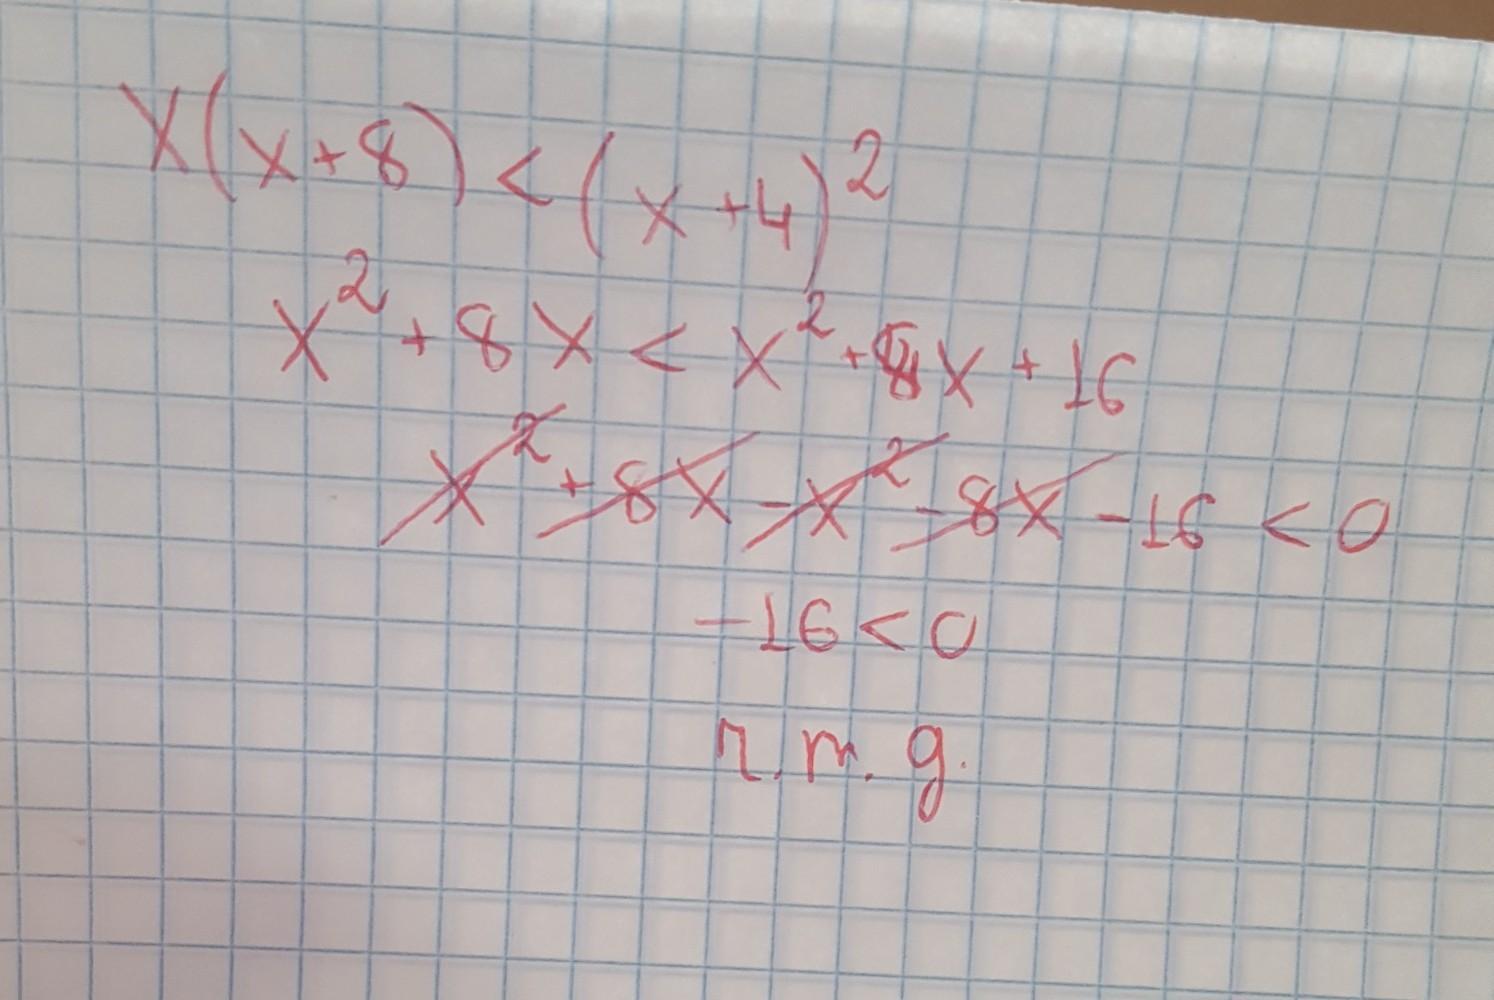 x(x+8)<(x+4)²
x²+8x<x²+8x+16
x²+8x-x²-8x-16<0
-16<0
r.m.g.